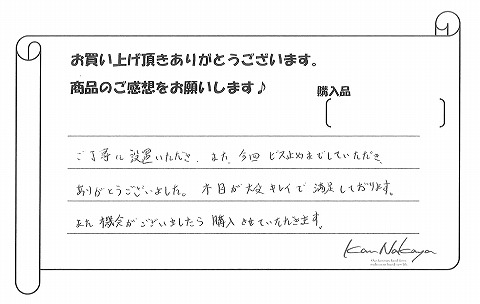 お買い上げ頂きありがとうございます。
商品のご感想をお願いします♪
購入品
ご丁寧に設置いただき、また、今回ビス止めまでしていただき、
ありがとうございました。木目が大変キレイで満足しております。
また機会がございましたら購入させていただきます。
Kan Nakaya